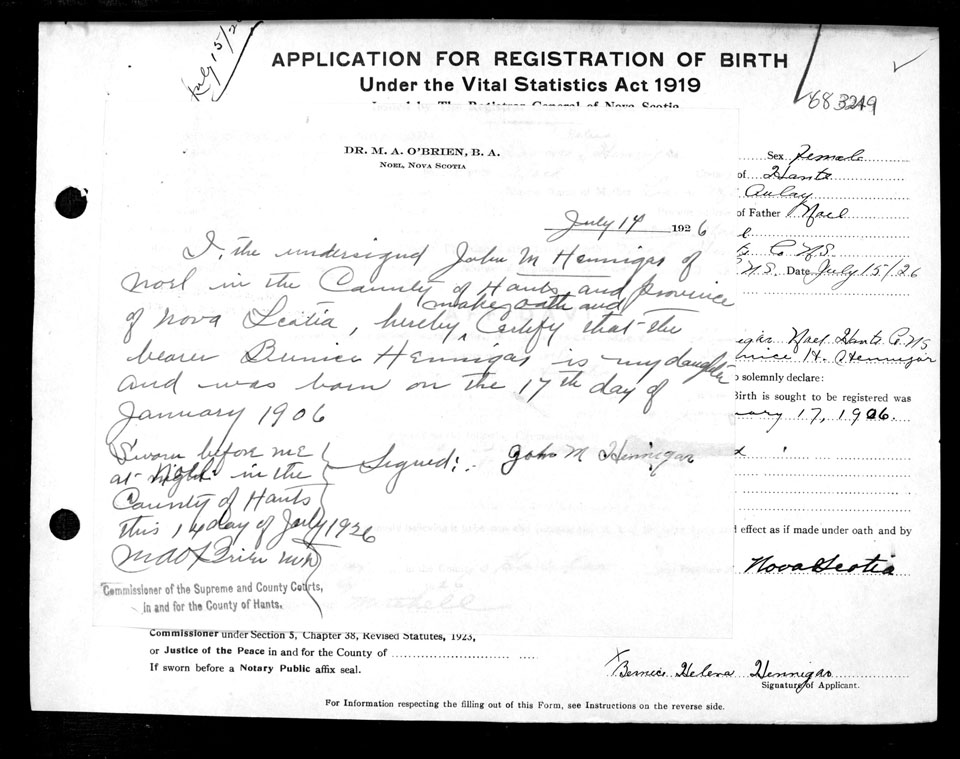 July 15/26
APPLICATION FOR REGISTRATION OF BIRTH
Under the Vital Statistics Act 1919
Issued by The Registrar General of Nova Scotia
683249
DR. M. A. O'BRIEN, B. A.
NOEL, NOVA SCOTIA
July 14 1926
I, the undersigned John M Hennigar of
Noel in the County of Hants and province
of Nova Scotia, hereby make oath and Certify that the
bearer Bernice Hennigar is my daughter
and was born on the 17th day of
January 1906
Sworn before me
at in the
County of Hants
this 14 day of July 1926
M A O'Brien
Commissioner of the Supreme and County Courts,
in and for the County of Hants.
Signed: John M Hennigar
Sex Female
of Hants
of Father Noel
Co N.S.
N.S. Date July 15/26
Noel Hants Co NS
H. Hennigar
solemnly declare:
Birth is sought to be registered was
17, 1906.
effect as if made under oath and by
Nova Scotia
Mitchell
Commissioner under Section 5, Chapter 38, Revised Statutes, 1923,
or Justice of the Peace in and for the County of
If sworn before a Notary Public affix seal.
X Bernice Helena Hennigar
Signature of Applicant.
For Information respecting the filling out of this Form, see Instructions on the reverse side.